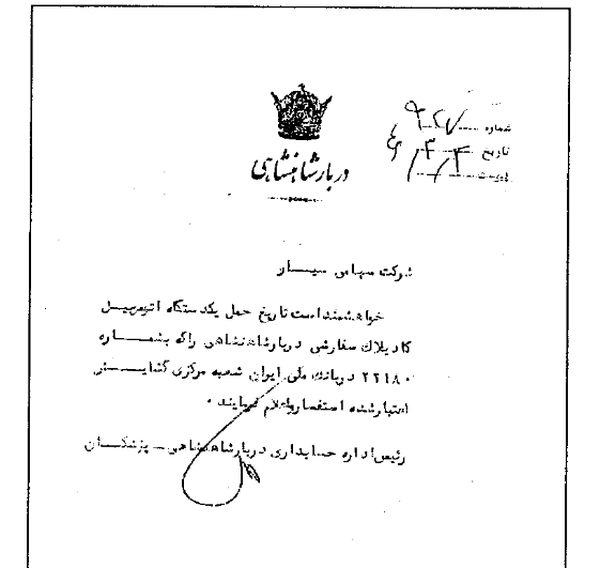 دربار شاهنشاهی
شماره ۹۲۷
تاریخ ۴/۳/
پیوست
شرکت سهامی سیـــار
خواهشمند است تاریخ حمل یکدستگاه اتومبیـل
کادیلاک سفارشی دربار شاهنشاهی را که بشمـــاره
۲۲۱۸۰ در بانک ملی ایران شعبه مرکزی گشایـــش
اعتبار شده استفسار و اعلام فرمایند ۰
رئیس اداره حسابداری دربار شاهنشاهی ــ پزشکـــان